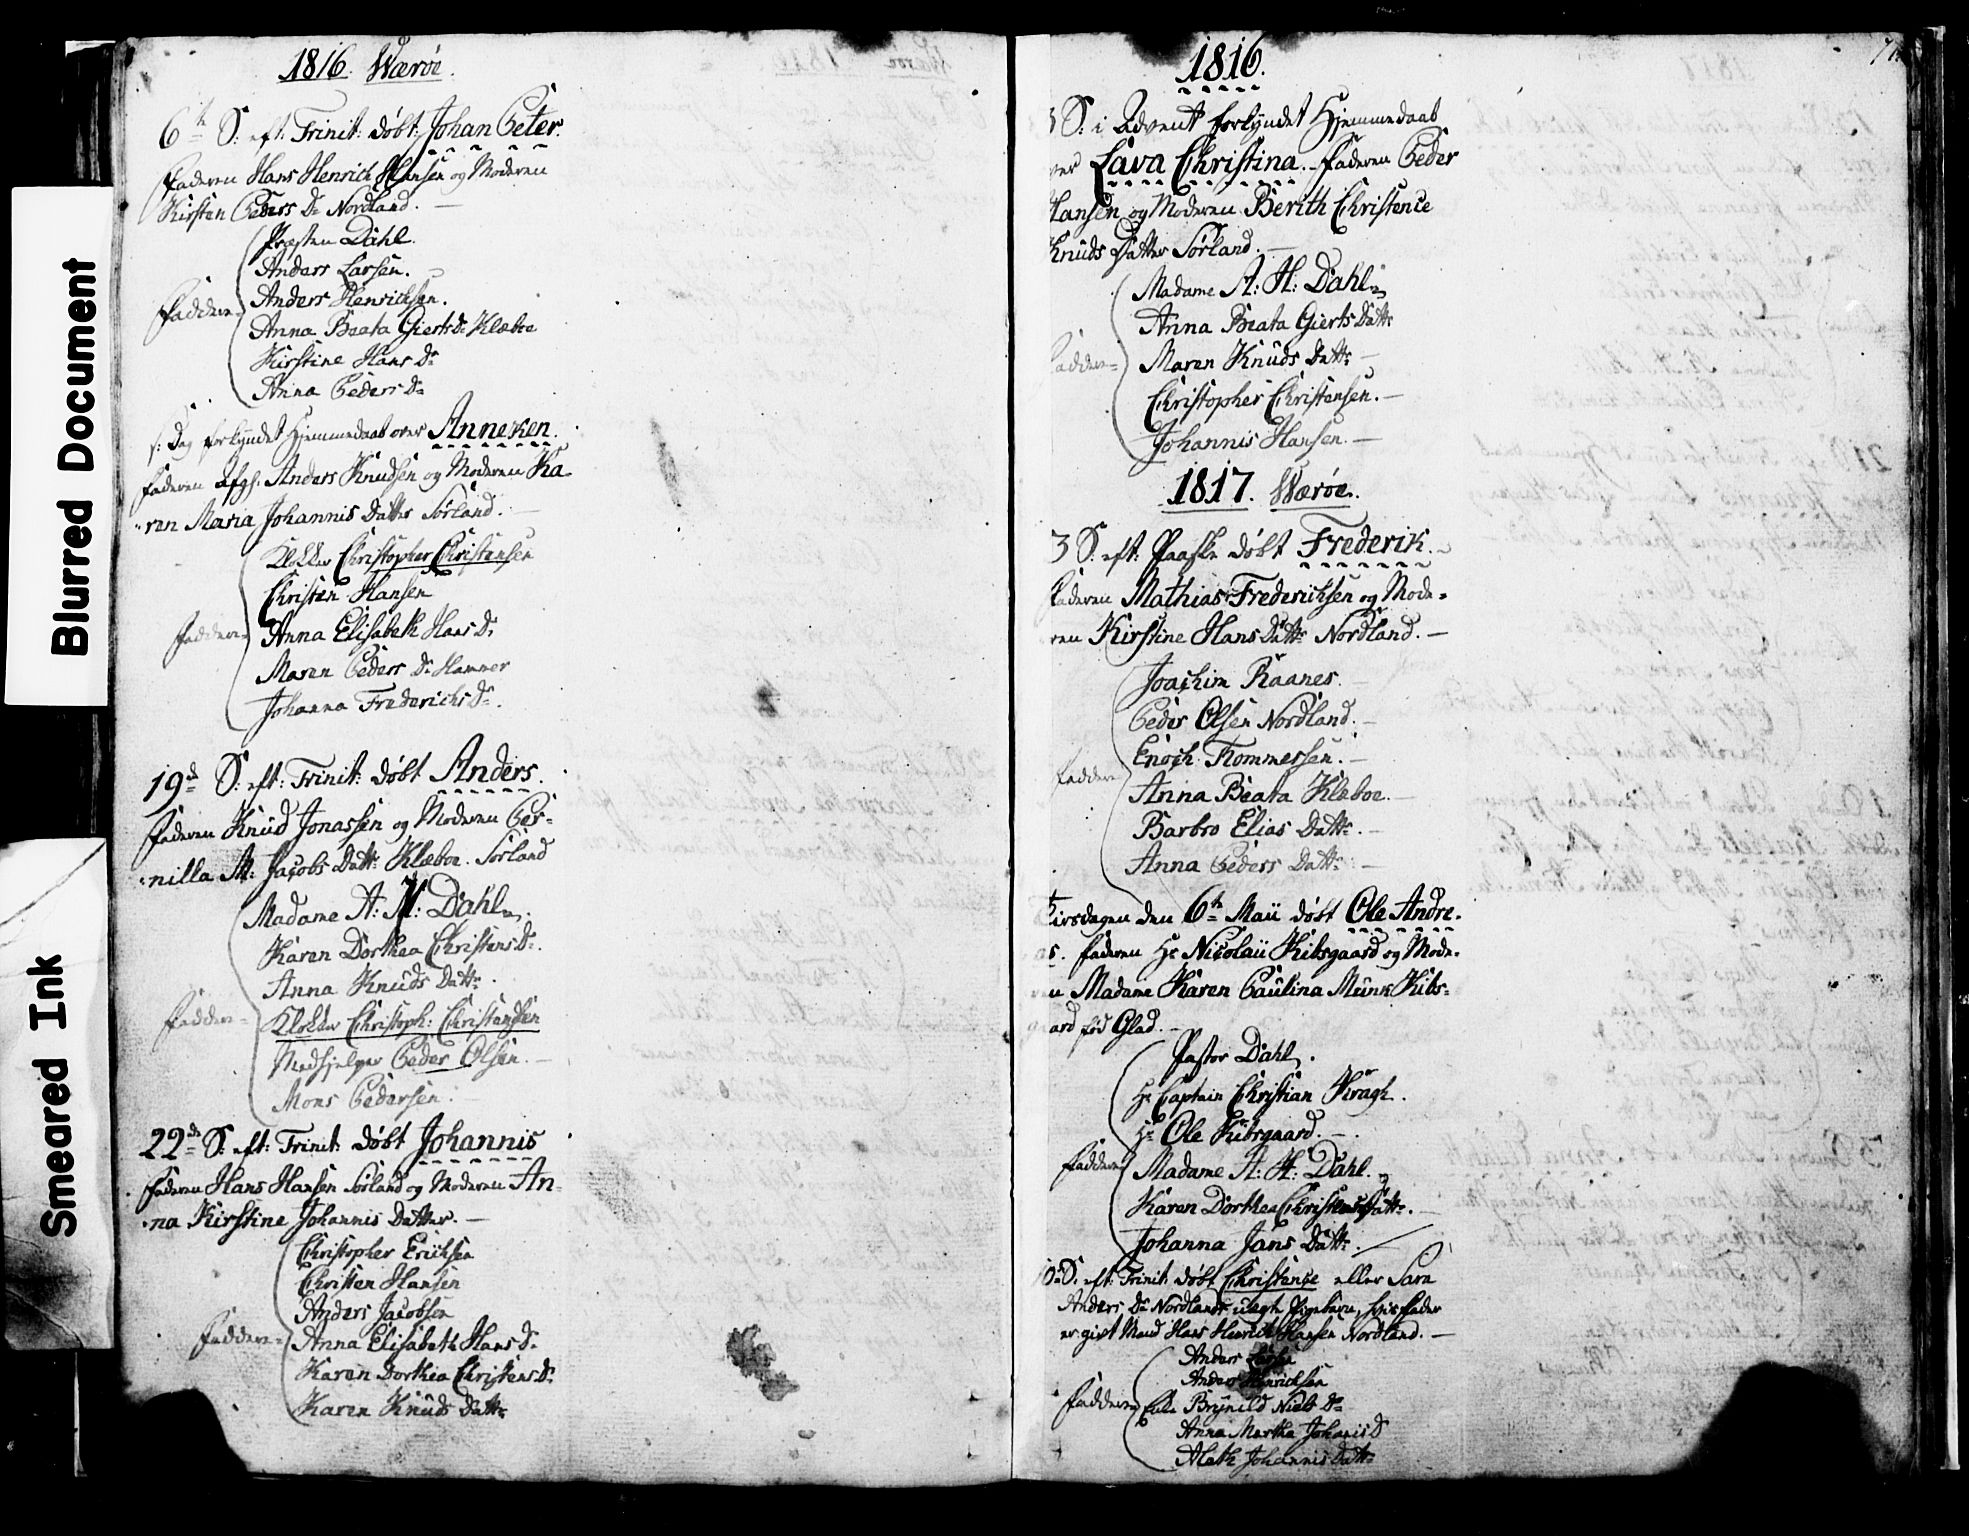 Blurred Document
Smeared Ink
1816. Værøe.
6te S: eft: Trinit: døbt Johan Peter.
Faderen Hans Henrich Hansen og Moderen
Kirsten Peders Dr Nordland.
Præsten Dahl.
Anders Larsen.
Anders Henrichsen.
Faddere
Anna Beata Gierts Dr Klæboe
Kirstine Hans Dr
Anna Peders Dr
s: Dag forkyndet Hjemmedaab over Anneken.
Faderen Afgl. Anders Knudsen og Moderen Ka
ren Maria Johannis Datter Sørland.
Klokker Christopher Christensen
Christen Hansen
Faddere
Anna Elisabeth Hans Dr
Maren Peders Dr Hammer
Johanna Frederichs Dr.
19de S: eft: Trinit: døbt Anders.
Faderen Knud Jonassen og Moderen Per-
nilla M: Jacobs Dattr Klæboe. Sørland
Madame A: H: Dahl.
Karen Dorthea Christens Dr.
Anna Knuds Dattr.
Faddere
Klokker Christoph: Christensen
Medhjelper Peder Olsen.
Mons Pedersen.
22de S: eft: Trinit: døbt Johannis
Faderen Hans Hansen Sørland og Moderen An-
na Kirstine Johannis Datter.
Christopher Erichsen
Christen Hansen
Anders Jacobsen
Faddere
Anna Elisabeth Hans Dr
Karen Dorthea Christens Dr
Karen Knuds Dattr
1816.
3 S: i Advent forkyndet Hjemmedaab
ver Lava Christina. Faderen Peder
Hansen og Moderen Berith Christence
Knuds Datter Sørland.
Madame A: H: Dahl
Anna Beata Gierts Dattr
Faddere
Maren Knuds Dattr
Christopher Christensen.
Johannis Hansen.
1817. Værøe.
3 S: eft: Paaske døbt Frederik.
Faderen Mathias Frederichsen og Mode-
ren Kirstine Hans Dattr Nordland.
Joachim Raanes.
Peder Olsen Nordland.
Enoch Tommersen.
Faddere
Anna Beata Klæboe.
Barbro Elias Dattr.
Anna Peders Dattr
Tirsdagen den 6te Maii døbt Ole Andre.
as. Faderen Hr Nicolaii Kibsgaard og Mode-
ren Madame Karen Paulina Munk Kibs-
gaard fød Glad.
Pastor Dahl.
Hr Captain Christian Kragh.
Hr Ole Kibsgaard.
Faddere
Madame A: H: Dahl.
Karen Dorthea Christens Dattr.
Johanna Jans Dattr.
S: eft: Trinit: døbt Christence eller Sara
Anders Dr Nordlands uægte Pigebarn, hvis Fader
er gift Mand Hans Henrich Hansen Nordland.
Anders Larsen
Anders Henrichsen
Faddere
Brynild Niels Dr
Anna Martha Johanis D
Johannis Dattr